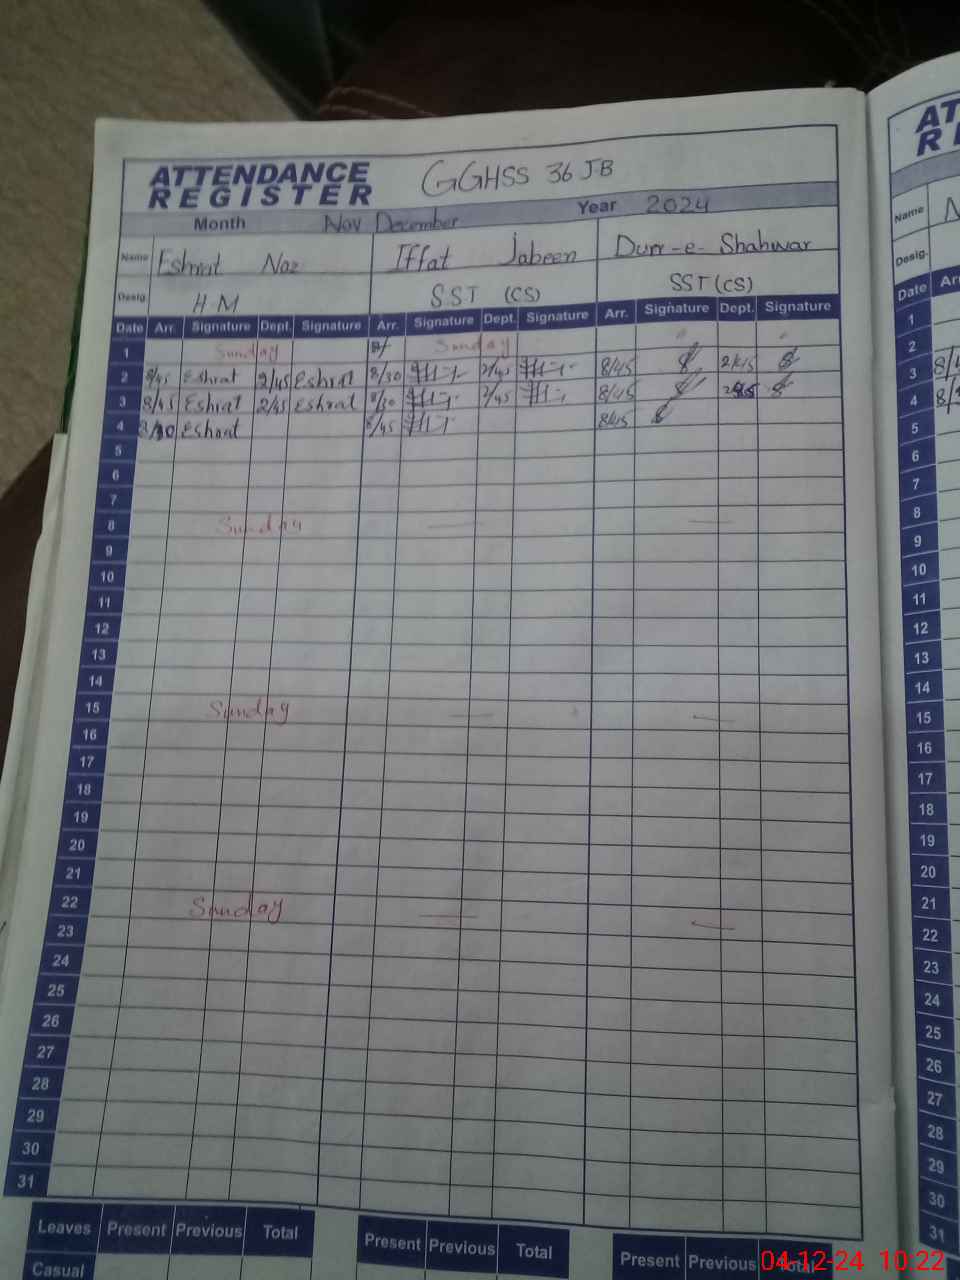 ATTENDANCE REGISTER GGHSS 36 J-B
Month Nov December Year 2024
Name Eshrat Naz Iffat Jabeen Durr-e-Shahwar
Desig. H.M S.ST (CS) SST (CS)
Date Arr. Signature Dept. Signature Arr. Signature Dept. Signature Arr. Signature Dept. Signature
1 Sunday Sunday
2 8/45 Eshrat 2/45 Eshrat 8/30 2/45 8/45 2/45
3 8/45 Eshrat 2/45 Eshrat 8/30 2/45 8/45
4 8/30 Eshrat 8/45 8/45
5
6
7
8 Sunday
9
10
11
12
13
14
15 Sunday
16
17
18
19
20
21
22 Sunday
23
24
25
26
27
28
29
30
31
Leaves Present Previous Total Present Previous Total Present Previous Total
Casual
AT
RE
Name
Desig.
Date
1
2
3 8/4
4 8/
5
6
7
8
9
10
11
12
13
14
15
16
17
18
19
20
21
22
23
24
25
26
27
28
29
30
31
04-12-24 10:22